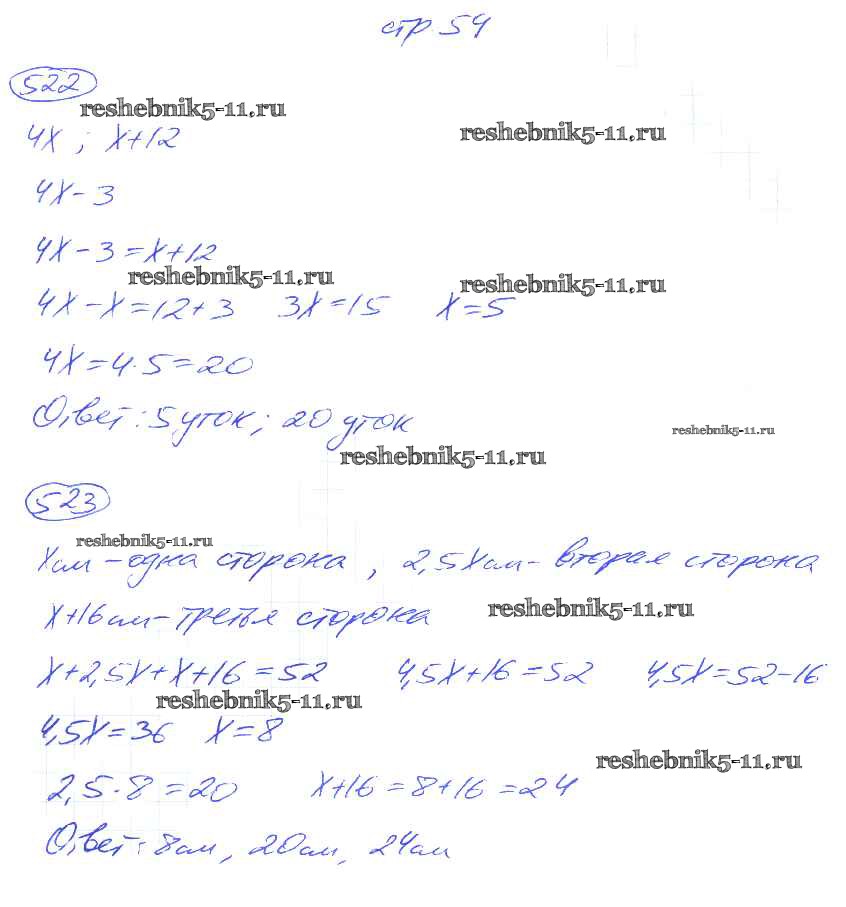 стр 54
522
reshebnik5-11.ru
4x ; x+12
reshebnik5-11.ru
4x-3
4x-3=x+12
reshebnik5-11.ru
reshebnik5-11.ru
4x-x=12+3 3x=15 x=5
4x=4·5=20
Ответ: 5 уток; 20 уток
reshebnik5-11.ru
reshebnik5-11.ru
523
reshebnik5-11.ru
xсм-одна сторона, 2,5xсм-вторая сторона
x+16см-третья сторона
reshebnik5-11.ru
x+2,5x+x+16=52 4,5x+16=52 4,5x=52-16
reshebnik5-11.ru
4,5x=36 x=8
reshebnik5-11.ru
2,5·8=20 x+16=8+16=24
Ответ: 8см, 20см, 24см